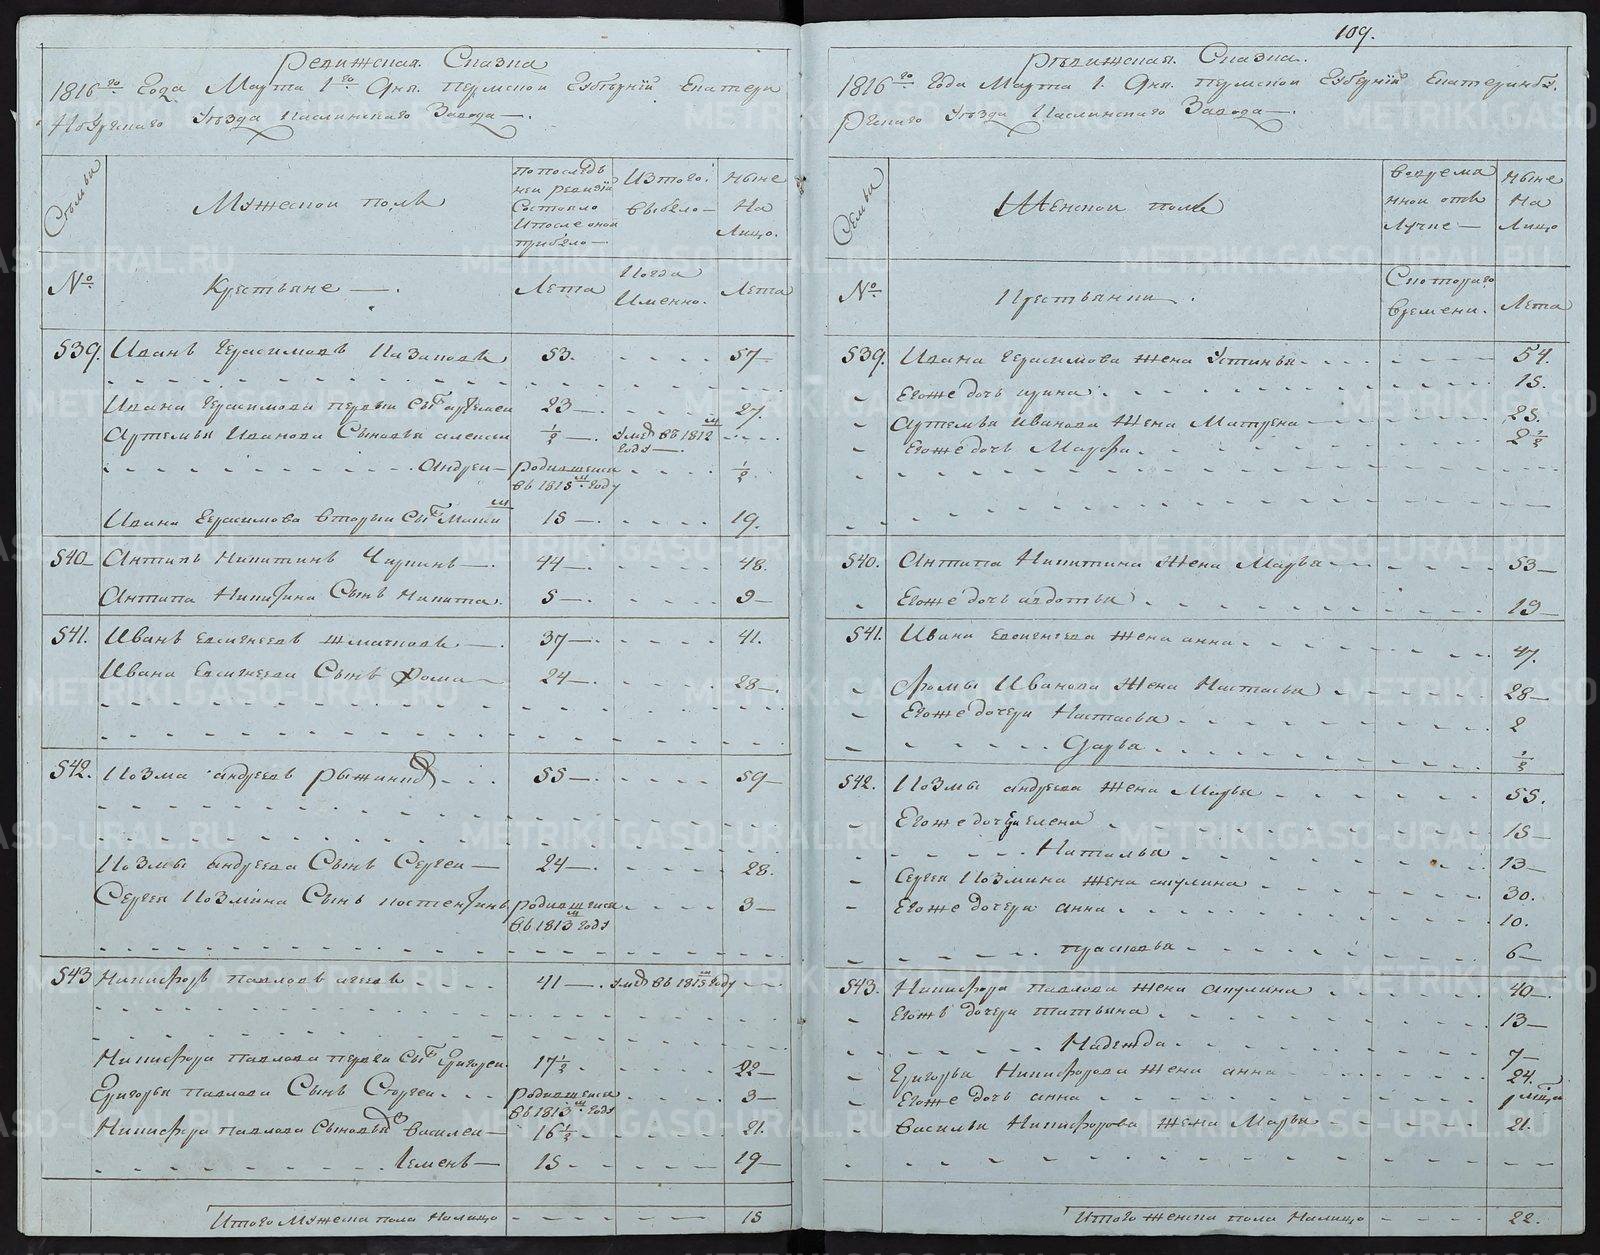 109.
Ревижская Сказка
1816го Года Марта 1го Дня. Пермской Губернїи Екатери
нбургскаго Уезда Каслинскаго Завода —.
Мужескои полъ
по последъ
неи ревизїи
Состояло
И после оной
прибыло —.
Изтого
выбыло —
Ныне
На
Лицо.
№
Крестьяне — .
Лета
Когда
Имянно.
Лета
539. Иванъ Герасимовъ Казаковъ 53. 57
Ивана Герасимова первыи Сынъ Артемеи 23 —. 27.
Артемья Иванова Сыновья алексеи ½ —. умре въ 1812м году —.
Андреи — родившеися въ 1815м году ½
Ивана Герасимова вторыи Сынъ 15 —. 19.
540 Антипъ Никитинъ 44 —. 48.
Антипа Никитина Сынъ Никита. 5 —. 9 —
541. Иванъ Евсигнеевъ 37 —. 41.
Ивана Евсигнеева Сынъ Фома — 24 —. 28 —.
542. Козма андреевъ Рыжанин 55 —. 59 —
Козмы андреева Сынъ Сергеи — 24 —. 28.
Сергея Козмина Сынъ костентинъ родившеися въ 1813м году 3 —
543 Никифоръ павловъ 41 —. умре въ 1815м году
Никифора павлова первои Сынъ Григореи 17½. 22 —
Григорья павлова Сынъ Сергеи. родившеися въ 1813м году 3 —
Никифора павлова Сыновья Василеи — 16½ 21.
Семенъ — 15 19 —
Итого Мужеска пола Налицо 15
Ревижская Сказка.
1816го Года Марта 1. Дня. Пермской Губернїи Екатеринбу
ргскаго Уезда Каслинскаго Завода —.
Семьи
Женскои полъ
Во время
нной отлу
лучке —
Ныне
На
Лицо
№
Крестьянки .
Скотораго
времени.
Лета
539. Ивана Герасимова Жена Устинья 54.
Егоже дочь ирина 15.
Артемья Иванова Жена Матрена 25.
Егоже дочь Марфа 2½
540. Антипа Никитина Жена Марья 53 —
Егоже дочь авдотья 19 —
541. Ивана Евсигнеева Жена анна 47.
Фомы Иванова Жена Настасья 28 —
Егоже дочери Настасья 2
Дарья ½
542. Козмы андреева Жена Марья 55.
Егоже дочери елена 15 —
Наталья 13 —
Сергея Козмина жена акулина 30.
Егоже дочери анна 10.
прасковья 6 —
543. Никифора павлова жена акулина 40 —.
Егоже дочери татьяна 13 —
Надежда 7 —
Григорья Никифорова Жена анна 24.
Егоже дочь анна 1 мца
Василья Никифорова Жена Марья 21.
Итого женска пола Налицо 22.